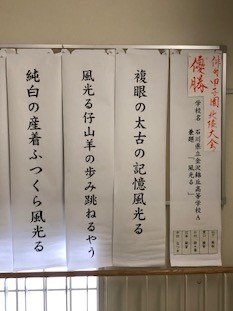 俳句甲子園 松塚大会
優勝
学校名 石川県立金沢錦丘高等学校A
兼題 「風光る」
複眼の太古の記憶風光る
風光る仔山羊の歩み跳ねるやう
純白の産着ふつくら風光る